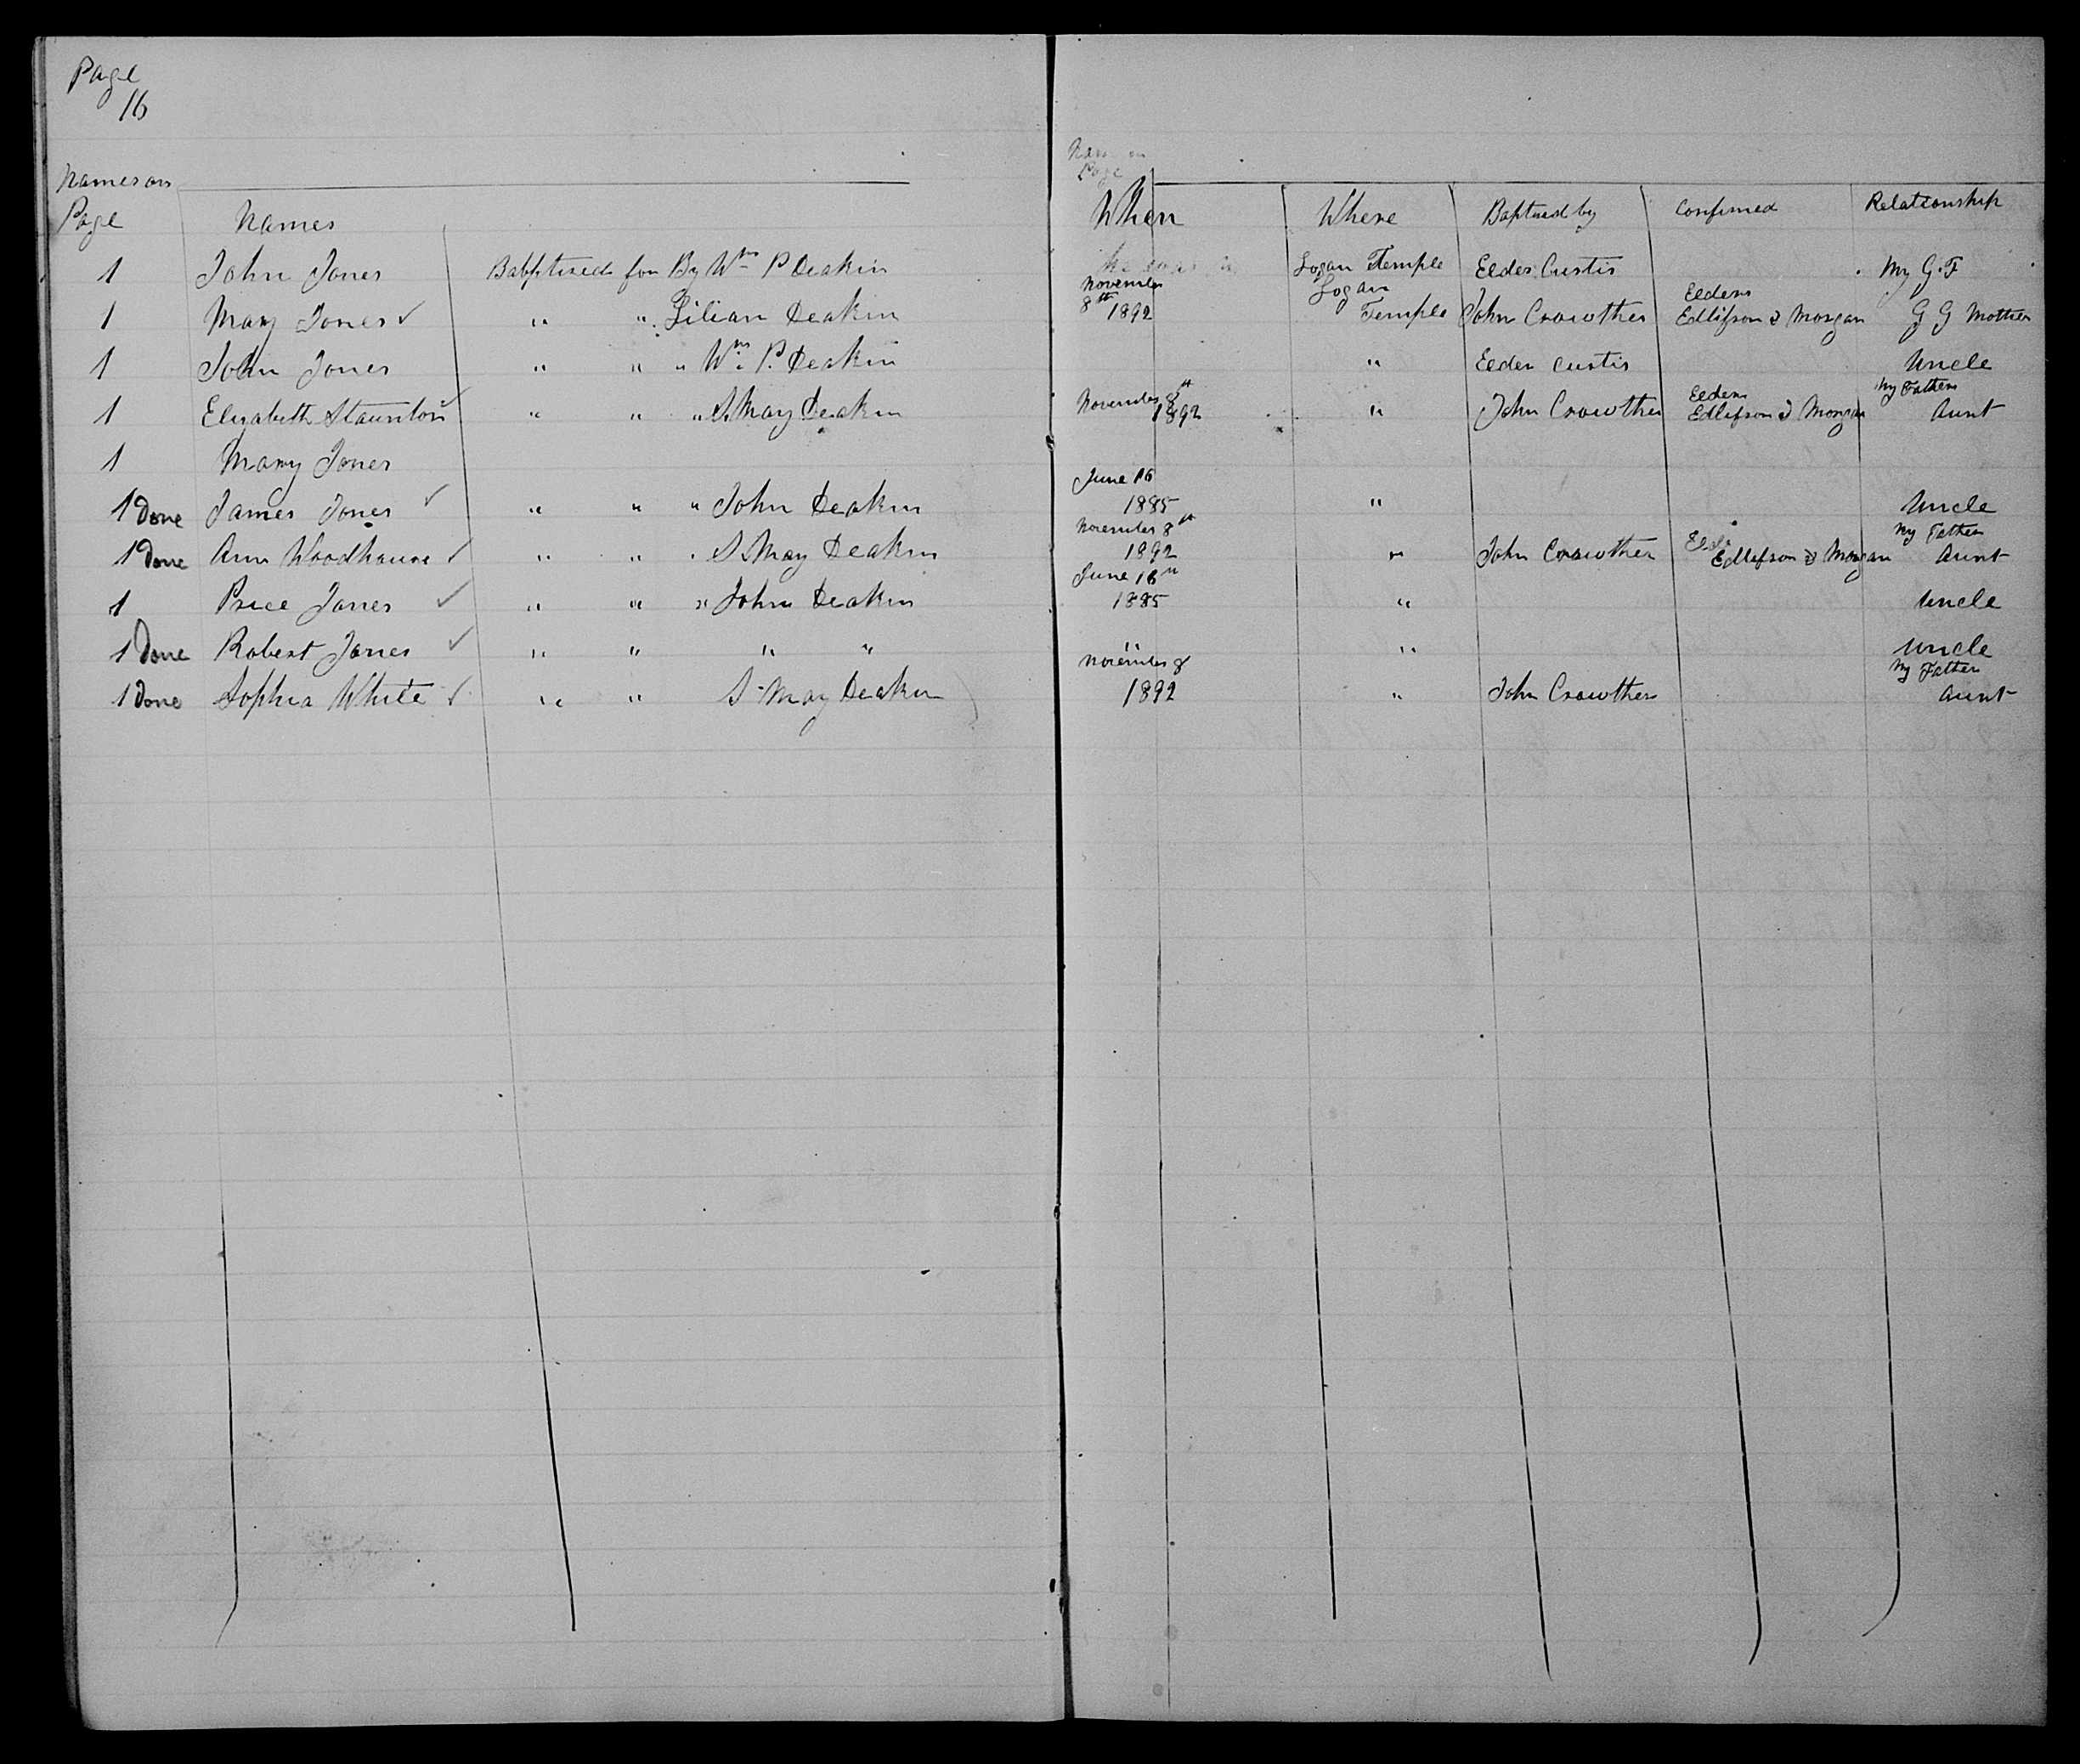 Page
16
Names on
Page Names When Where Baptised by Confirmed Relationship
1 John Jones Babptised for By Wm P Deakin Logan Temple Elder Curtis My G. F
1 Mary Jones ✓ " " Lilian Deakin November 8th 1892 Logan Temple John Crowther Elders Edlifson & Morgan G G Mother
1 John Jones " " " Wm P. Deakin " Elder Curtis Uncle
1 Elizabeth Staunton ✓ " " " S. May Deakin November 8th 1892 " John Crowther Elders Edlifson & Morgan My Fathers Aunt
1 Mary Jones
1 Done James Jones ✓ " " " John Deakin June 16 1885 " Uncle
1 Done Ann Woodhouse ✓ " " " S. May Deakin November 8th 1892 " John Crowther Edlifson & Morgan My Father Aunt
1 Price Jones ✓ " " " John Deakin June 16th 1885 " Uncle
1 Done Robert Jones ✓ " " " " " " Uncle
1 Done Sophia White ✓ " " S. May Deakin November 8 1892 " John Crowther My Father Aunt